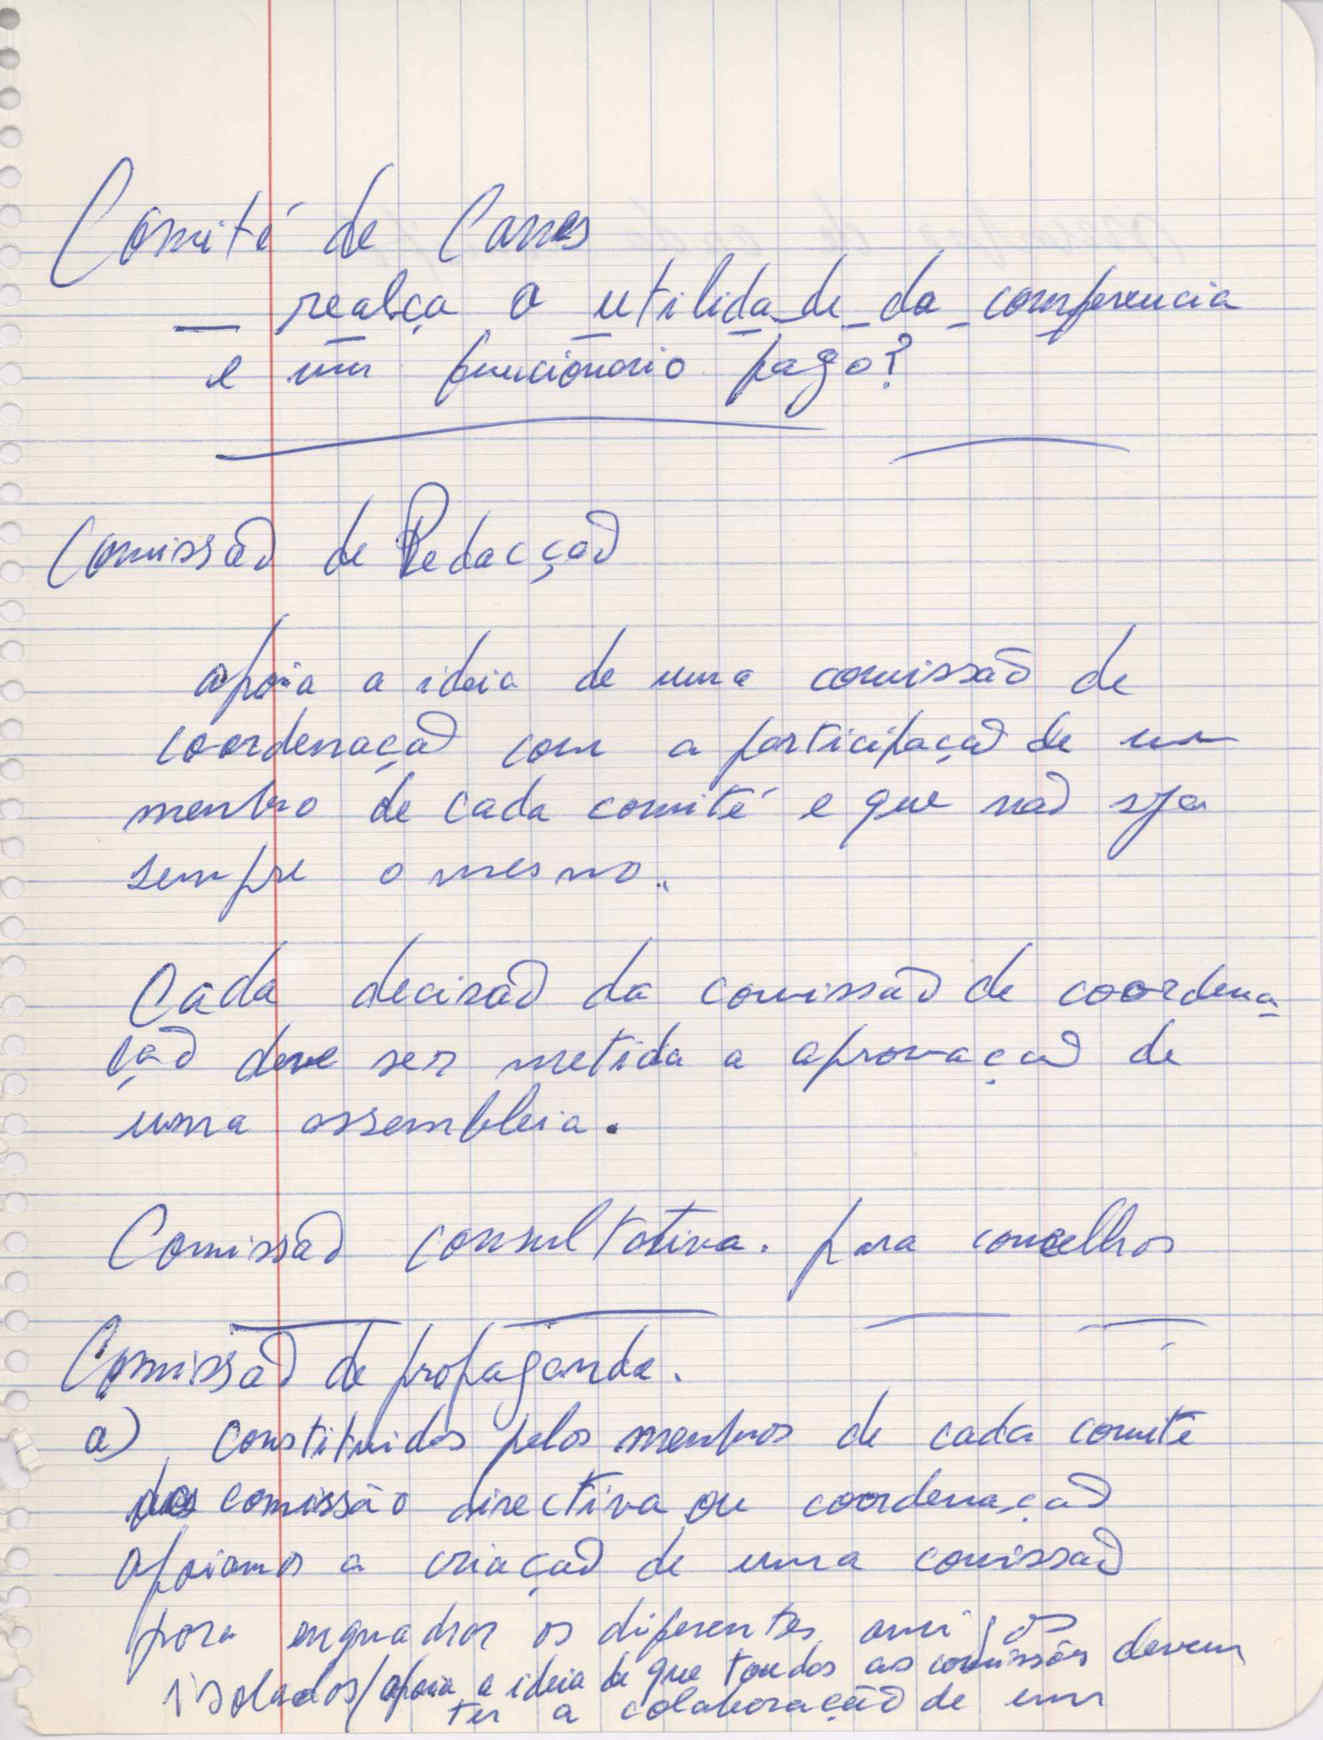 Comité de Canes
realça a utilidade da conferencia
e um funcionario pago?
Comissão de Redacção
apoia a ideia de uma comissão de
coordenação com a participação de um
membro de cada comité e que não seja
sempre o mesmo.
Cada decisão da comissão de coordena
ção deve ser metida a aprovação de
uma assembleia.
Comissão consultativa. para concelhos
Comissão de propaganda.
a) constituidos pelos membros de cada comité
comissão directiva ou coordenação
apoiamos a criação de uma comissão
para enquadrar os diferentes amigos
isolados/apoia a ideia de que toudos as comissões devem
ter a colaboração de um